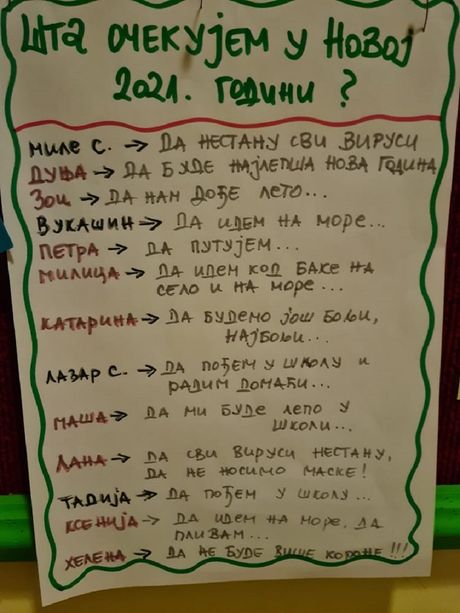 ШТА ОЧЕКУЈЕМ У НОВОЈ
2021. ГОДИНИ?
МИЛЕ С. → ДА НЕСТАНУ СВИ ВИРУСИ
ДУЊА → ДА БУДЕ НАЈЛЕПША НОВА ГОДИНА
ЗОИ → ДА НАМ ДОЂЕ ЛЕТО...
ВУКАШИН → ДА ИДЕМ НА МОРЕ...
ПЕТРА → ДА ПУТУЈЕМ...
МИЛИЦА → ДА ИДЕМ КОД БАКЕ НА
СЕЛО И НА МОРЕ...
КАТАРИНА → ДА БУДЕМО ЈОШ БОЉИ,
НАЈБОЉИ...
ЛАЗАР С. → ДА ПОЂЕМ У ШКОЛУ И
РАДИМ ДОМАЋИ...
МАША → ДА МИ БУДЕ ЛЕПО У
ШКОЛИ...
ЛАНА → ДА СВИ ВИРУСИ НЕСТАНУ,
ДА НЕ НОСИМО МАСКЕ!
ТАДИЈА → ДА ПОЂЕМ У ШКОЛУ...
КСЕНИЈА → ДА ИДЕМ НА МОРЕ, ДА
ПЛИВАМ...
ХЕЛЕНА → ДА НЕ БУДЕ ВИШЕ КОРОНЕ!!!